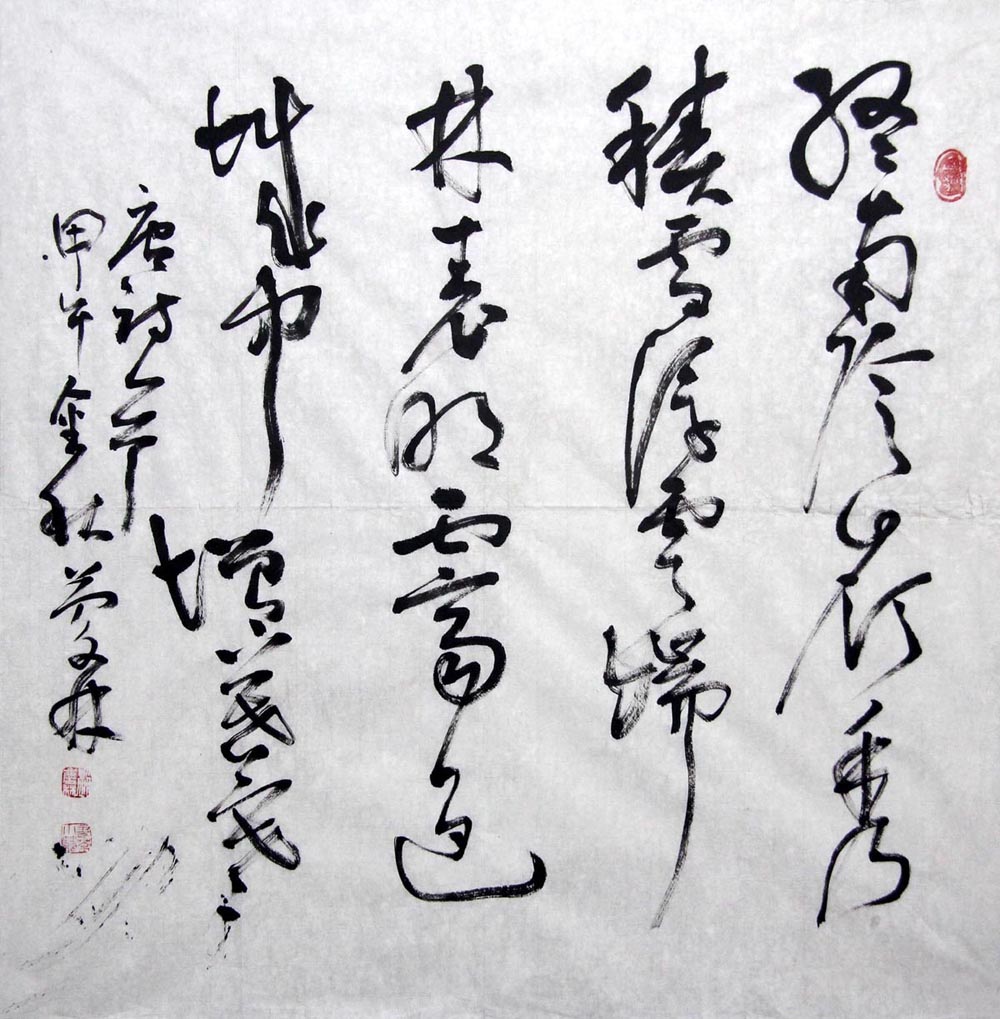 終南陰嶺秀
積雪浮雲端
林表明霽色
城中增暮寒
唐詩
甲午金秋